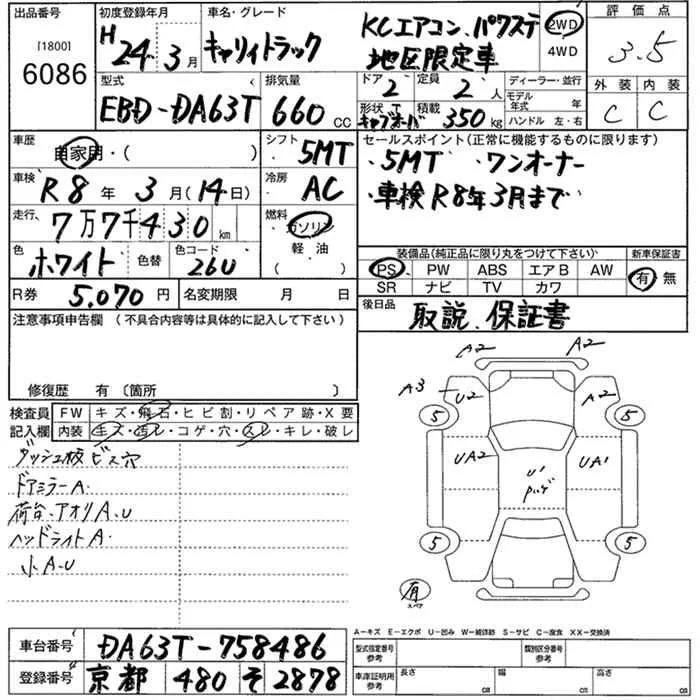 出品番号 初度登録年月 車名・グレード 評価点
[1800]
6086
H24年3月
キャリィトラック KCエアコン.パワステ 地区限定車
2WD
4WD
3.5
型式 排気量 ドア 定員 ディーラー・並行 外装 内装
EBD-DA63T 660cc 2 2人 モデル年式 年
形状 キャブオーバ 積載 350kg ハンドル 左・右 C C
車歴 自家用・( ) シフト 5MT
セールスポイント(正常に機能するものに限ります)
・5MT ・ワンオーナー
・車検R8年3月まで
車検 R8年3月(14日) 冷房 AC
走行 7万7千430km 燃料 ガソリン 軽油 ( )
色 ホワイト 色替 色コード 26U
装備品(純正品に限り丸をつけて下さい) 新車保証書
PS PW ABS エアB AW 有・無
SR ナビ TV カワ
R券 5,070円 名変期限 月 日
後日品 取説、保証書
注意事項申告欄(不具合内容等は具体的に記入して下さい)
修復歴 有〔箇所 〕
検査員記入欄 FW キズ・飛石・ヒビ割・リペア跡・X要
内装 キズ・汚レ・コゲ・穴・スレ・キレ・破レ
ダッシュ板ビス穴
ドアミラーA.
荷台、アオリA、U
ヘッドライトA.
小A.U
A2 A2
A3 U2 A2
5 5
UA2 U' UA1
5 5
有
スペア
A-キズ E-エクボ U-凹み W-補修跡 S-サビ C-腐食 XX-交換済
車台番号 DA63T-758486
型式指定番号 参考 類別区分番号 参考
登録番号 京都 480 そ 2878
車庫証明用 参考 長さ cm 幅 cm 高さ cm